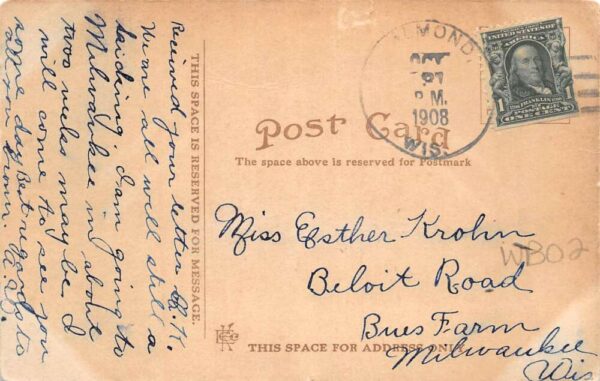 Received your letter O.K.
We are all well still a
kiding, I am going to
Milwaukee in about
two weeks may be I
will come to see you
some day Best regards to
all you from.
THIS SPACE IS RESERVED FOR MESSAGE.
ALMOND
OCT
21
P.M.
1908
WIS.
UNITED STATES OF AMERICA
FRANKLIN
POSTAGE
1 ONE CENT 1
Post Card
The space above is reserved for Postmark
Miss Esther Krohn
WB02
Beloit Road
Bues Farm
Milwaukee
Wis
THIS SPACE FOR ADDRESS ONLY